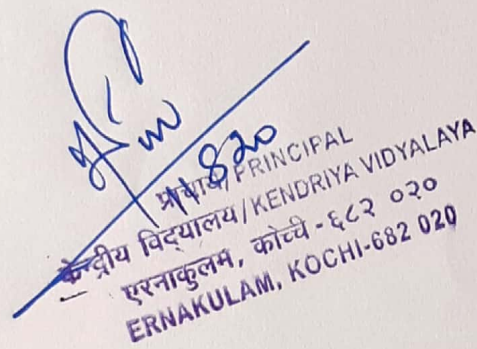 प्राचार्य/PRINCIPAL
केन्द्रीय विद्यालय/KENDRIYA VIDYALAYA
एरनाकुलम, कोच्चि - ६८२ ०२०
ERNAKULAM, KOCHI-682 020